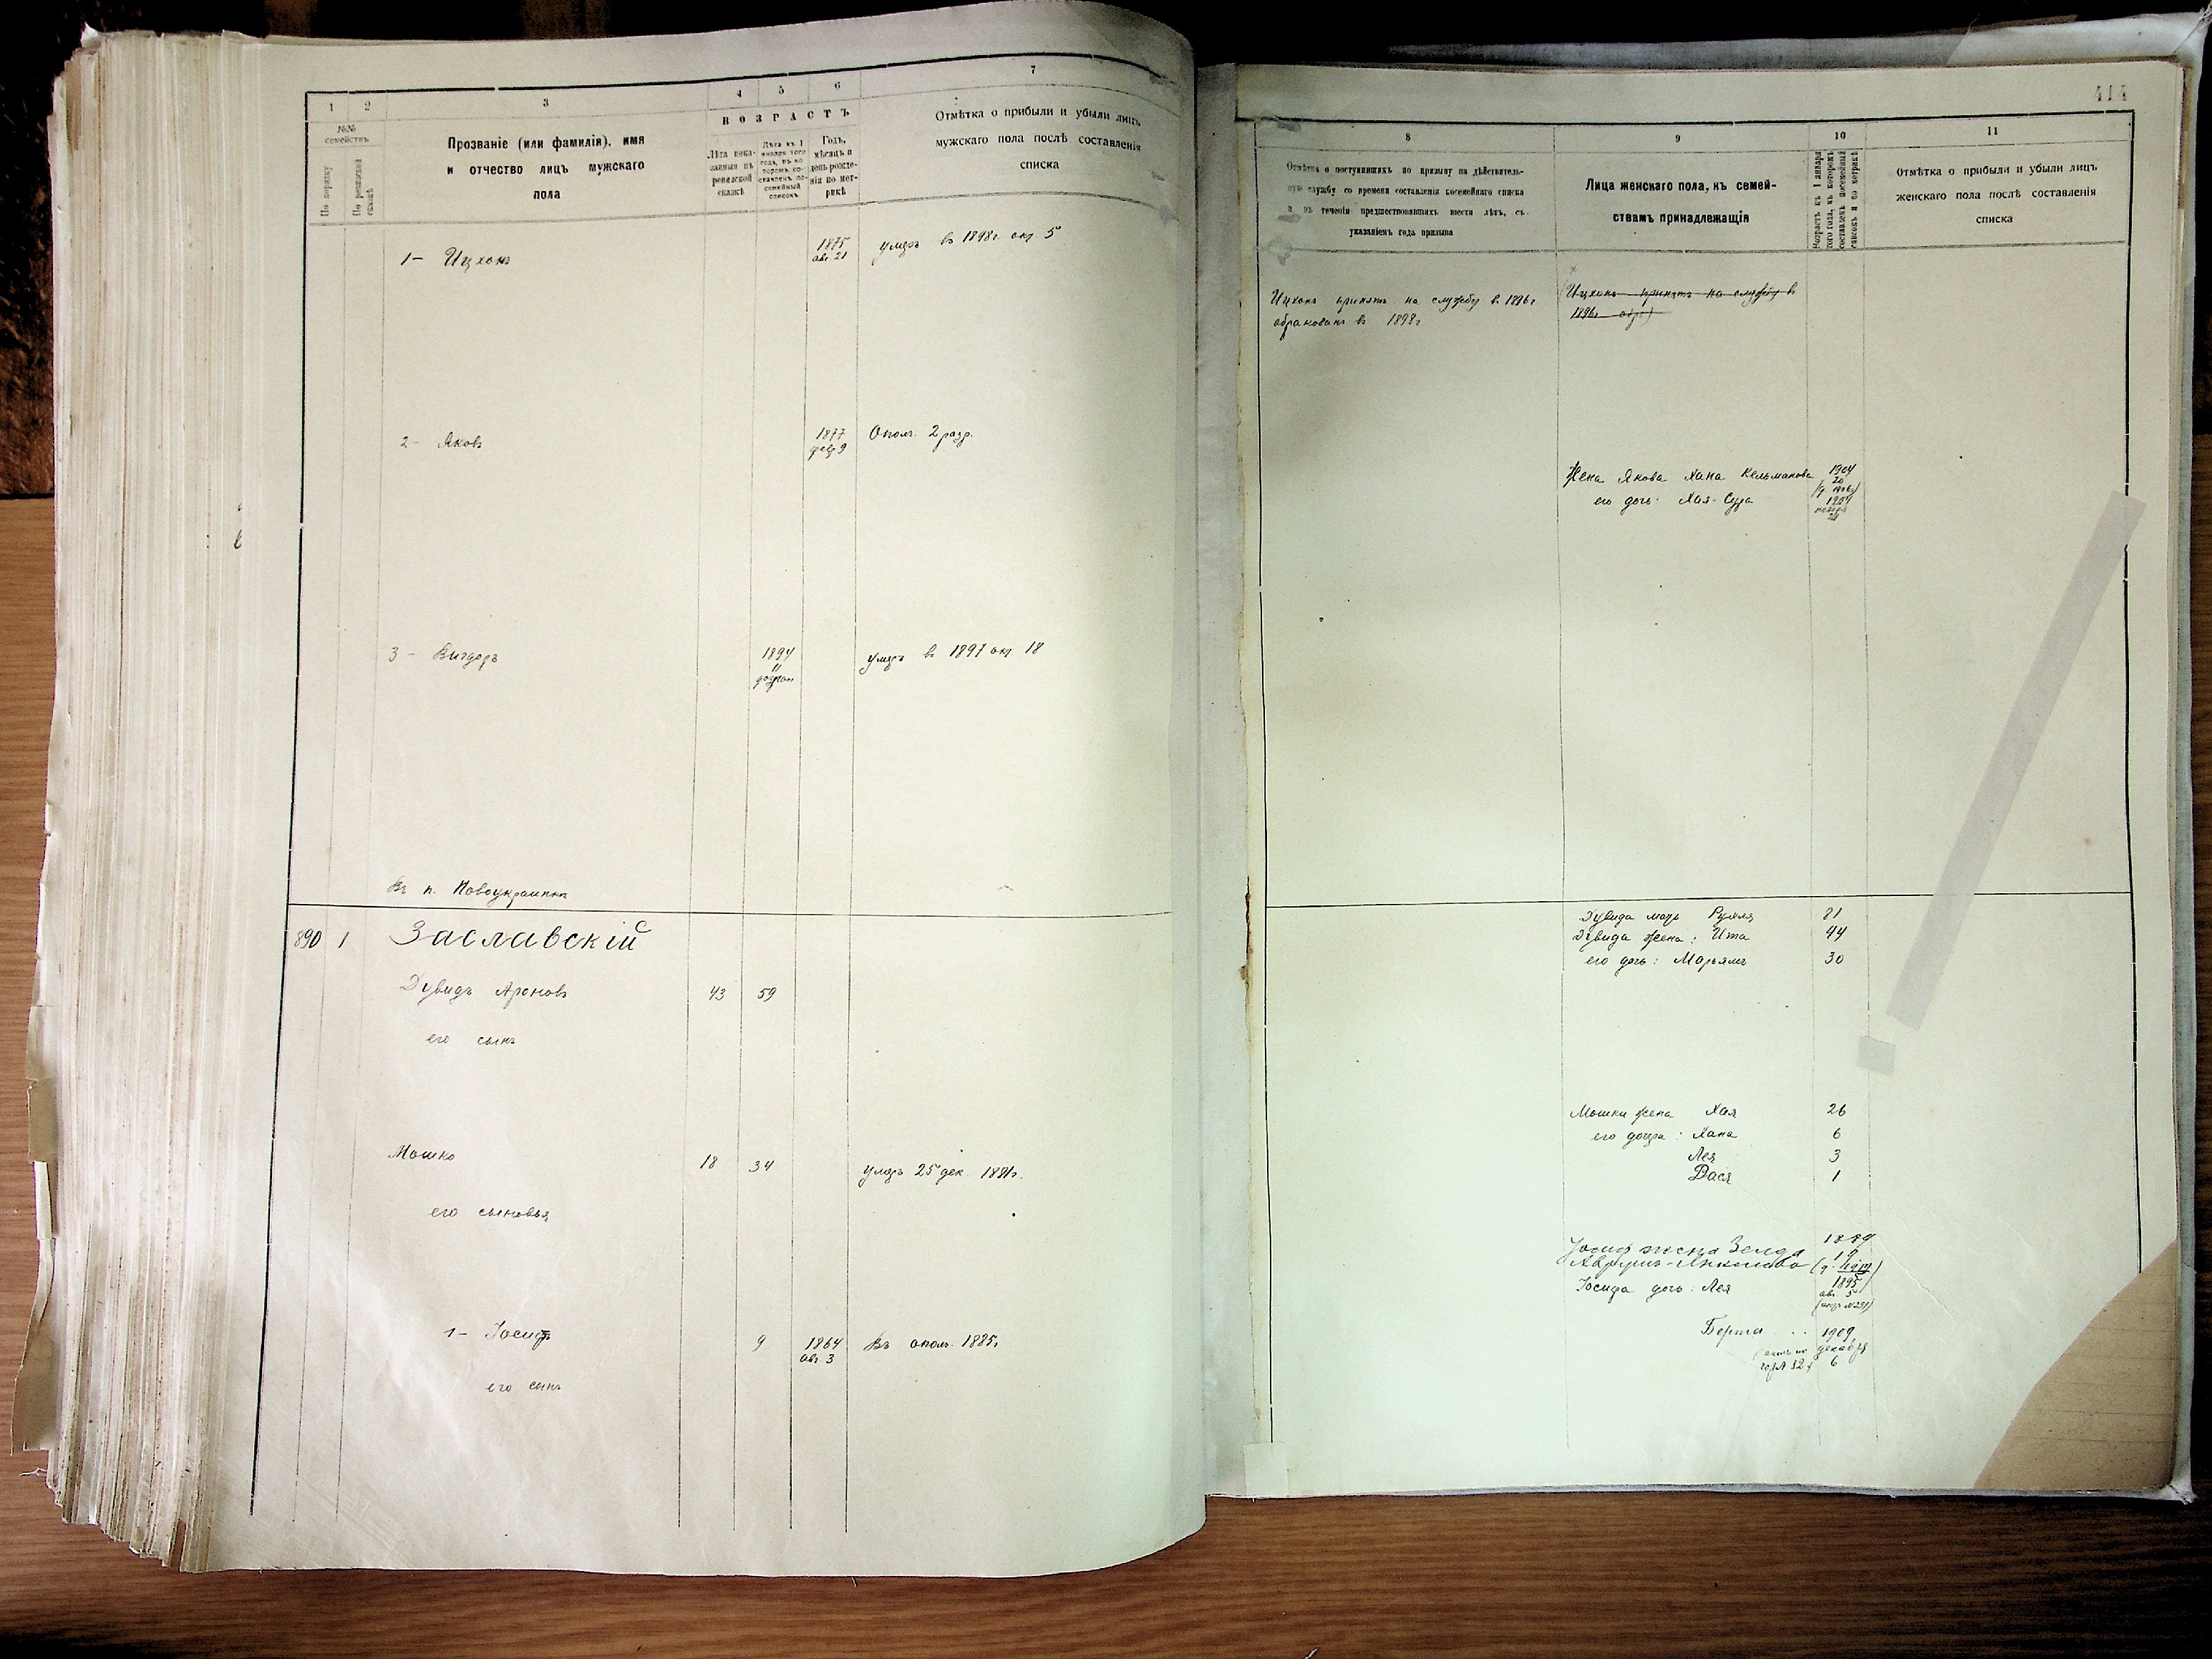 1
2
3
4
5
6
7
№№ семействъ
По порядку
По ревизской сказкѣ
Прозваніе (или фамилія), имя
и отчество лицъ мужскаго
пола
ВОЗРАСТЪ
Лѣта пока-
занныя въ
ревизской
сказкѣ
Лѣта къ 1
января того
года, въ ко-
торомъ со-
ставленъ по-
семейный
списокъ
Годъ,
мѣсяцъ и
день рожде-
нія по мет-
рикѣ
Отмѣтка о прибыли и убыли лицъ
мужскаго пола послѣ составленія
списка
1- Ицхокъ
1875
авг. 21
умеръ въ 1898г. окт 5
2- Яковъ
1877
февр 9
Ополч. 2 разр.
3- Вигдоръ
1894
11
умеръ въ 1897 окт 18
Въ п. Новоукраинкѣ
890 1 Заславскій
Дувидъ Ароновъ 43 59
его сынъ
Мошко 18 34 умеръ 25 дек. 1881г.
его сыновья
1- Іосифъ 9 1864
авг. 3
Въ ополч. 1885г
его сынъ
414
8
9
10
11
Отмѣтка о поступившихъ по призыву на дѣйствитель-
ную службу со времени составленія посемейнаго списка
и въ теченіи предшествовавшихъ шести лѣтъ, съ
указаніемъ года призыва
Лица женскаго пола, къ семей-
ствамъ принадлежащія
Возрастъ къ 1 января
того года, въ которомъ
составленъ посемейный
списокъ и по метрикѣ
Отмѣтка о прибыли и убыли лицъ
женскаго пола послѣ составленія
списка
Ицхокъ принятъ на службу въ 1896г
обракованъ въ 1898г
Ицхокъ принятъ на службу въ
1896г
Жена Якова Хана Кельманова 1904
20
его дочь: Хая-Сура 1904
Дувида мать Рухля 81
Дувида жена: Ита 44
его дочь: Марьямъ 30
Мошки жена Хая 26
его дочери: Хана 6
Лея 3
Вася 1
Іосифа жена Зелда 1889
19
Іосифа дочь: Лея 1895
авг. 5
Берта 1909
декабря
6